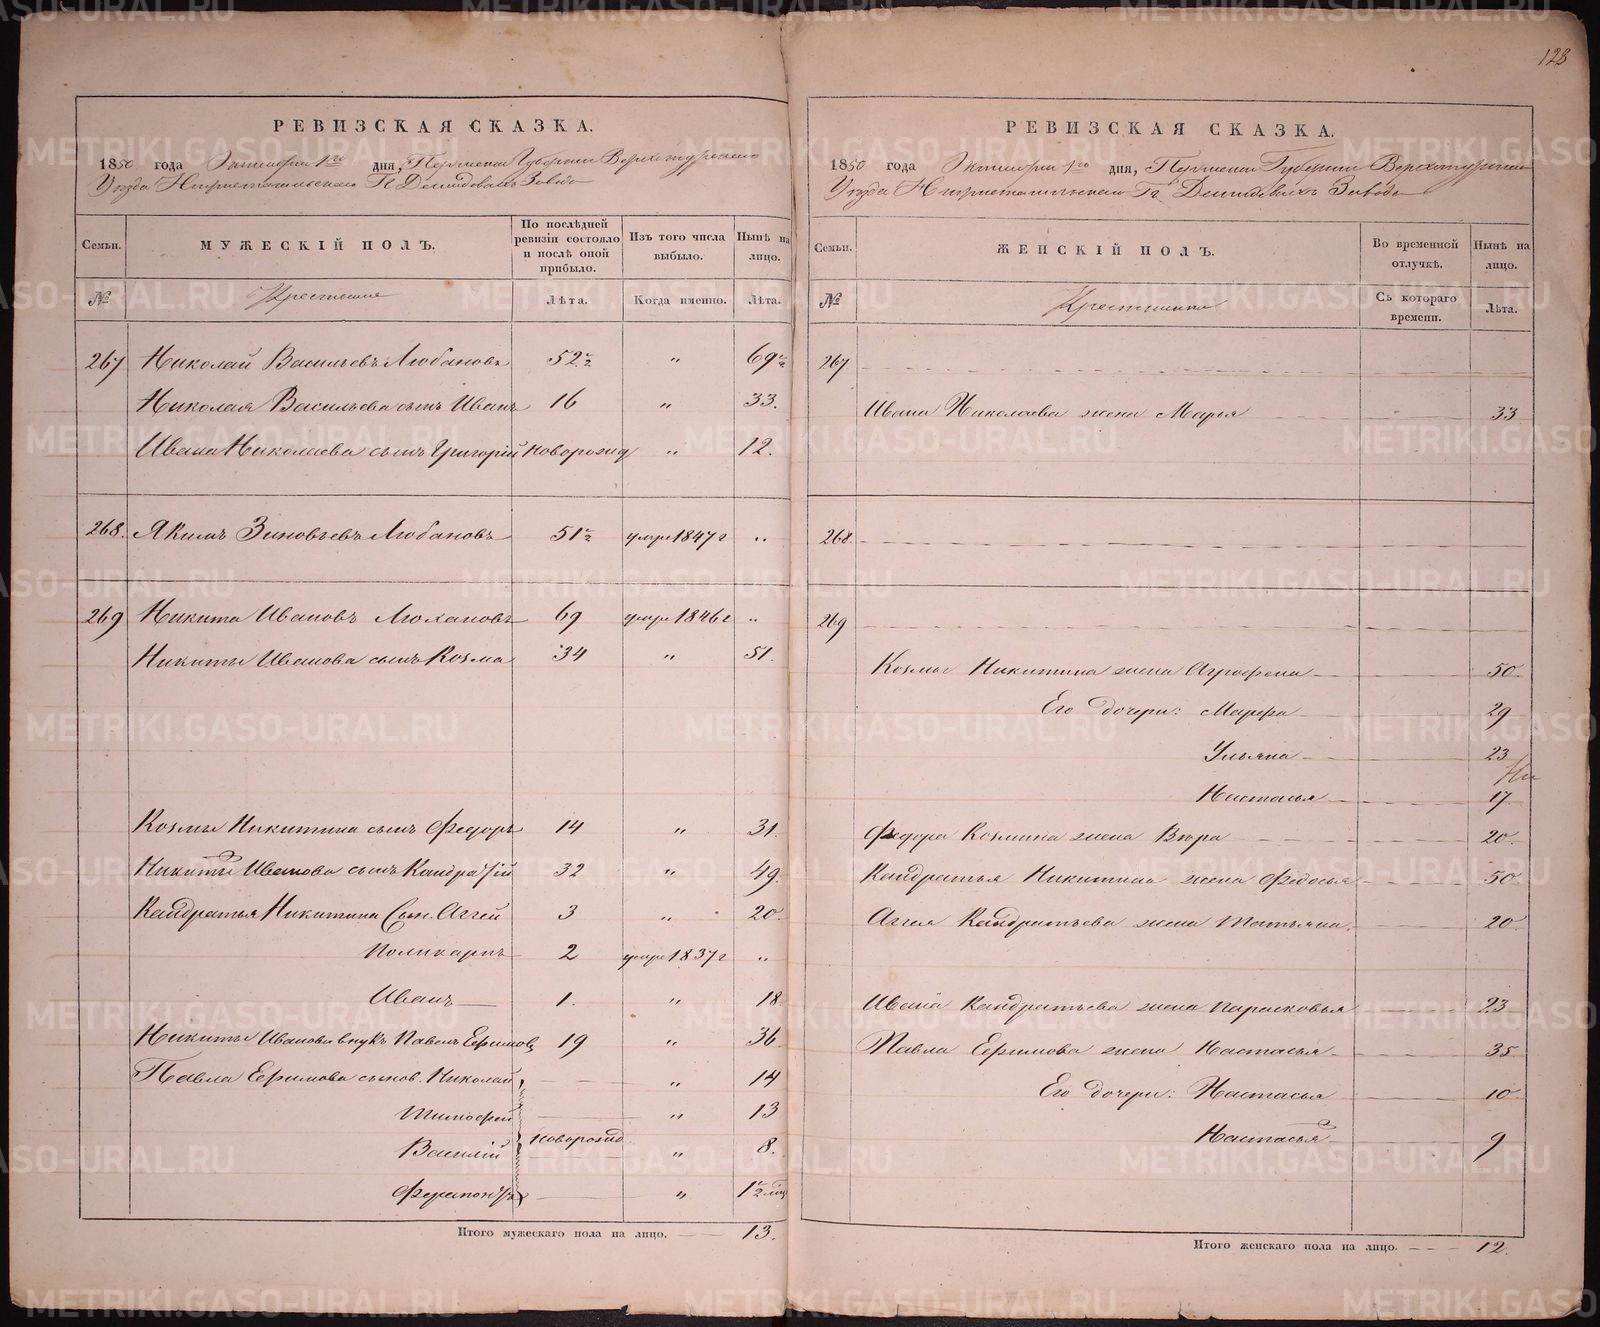 123
РЕВИЗСКАЯ СКАЗКА.
1850 года Октября 1го дня, Пермской Губернии Верхотурскаго
Уезда Нижнетагильскаго Гг. Демидовыхъ Завода
Семьи. МУЖЕСКІЙ ПОЛЪ. По послѣдней ревизіи состояло и послѣ оной прибыло. Изъ того числа выбыло. Нынѣ на лицо.
№ Крестьяне Лѣта. Когда именно. Лѣта.
267 Николай Васильевъ Любановъ 52½ " 69½
Николая Васильева сынъ Иванъ 16 " 33.
Ивана Николаева сынъ Григорій новорожд " 12.
268. Якимъ Зиновьевъ Любановъ 51½ умре 1847 г "
269 Никита Ивановъ Люхановъ 69 умре 1846 г "
Никиты Иванова сынъ Козма 34 " 51.
Козмы Никитина сынъ Федоръ 14 " 31.
Никиты Иванова сынъ Кандратій 32 " 49.
Кандратья Никитина Сын. Аггей 3 " 20.
Поликарпъ 2 умре 1837 г "
Иванъ 1. " 18.
Никиты Иванова внукъ Павелъ Ефимовъ 19 " 36
Павла Ефимова сынов. Николай " 14
Тимофей " 13
Василій новорожд " 8.
Ферапонтъ " ½ мѣс
Итого мужескаго пола на лицо. 13.
РЕВИЗСКАЯ СКАЗКА.
1850 года Октября 1го дня, Пермской Губерніи Верхотурскаго
Уезда Нижнетагильскаго Гг. Демидовыхъ Завода
Семьи. ЖЕНСКІЙ ПОЛЪ. Во временной отлучкѣ. Нынѣ на лицо.
№ Крестьянки Съ котораго времени. Лѣта.
267
Ивана Николаева жена Марья 33
268
269
Козмы Никитина жена Агрофена 50
Его дочери: Марфа 29
Ульяна 23
Настасья 17
Федора Козмина жена Вѣра 20.
Кандратья Никитина жена Федосья 50
Аггея Кандратьева жена Татьяна. 20
Ивана Кандратьева жена Парасковья 23
Павла Ефимова жена Настасья 35
Его дочери: Настасья 10
Настасья 9
Итого женскаго пола на лицо. 12.
METRIKI.GASO-URAL.RU